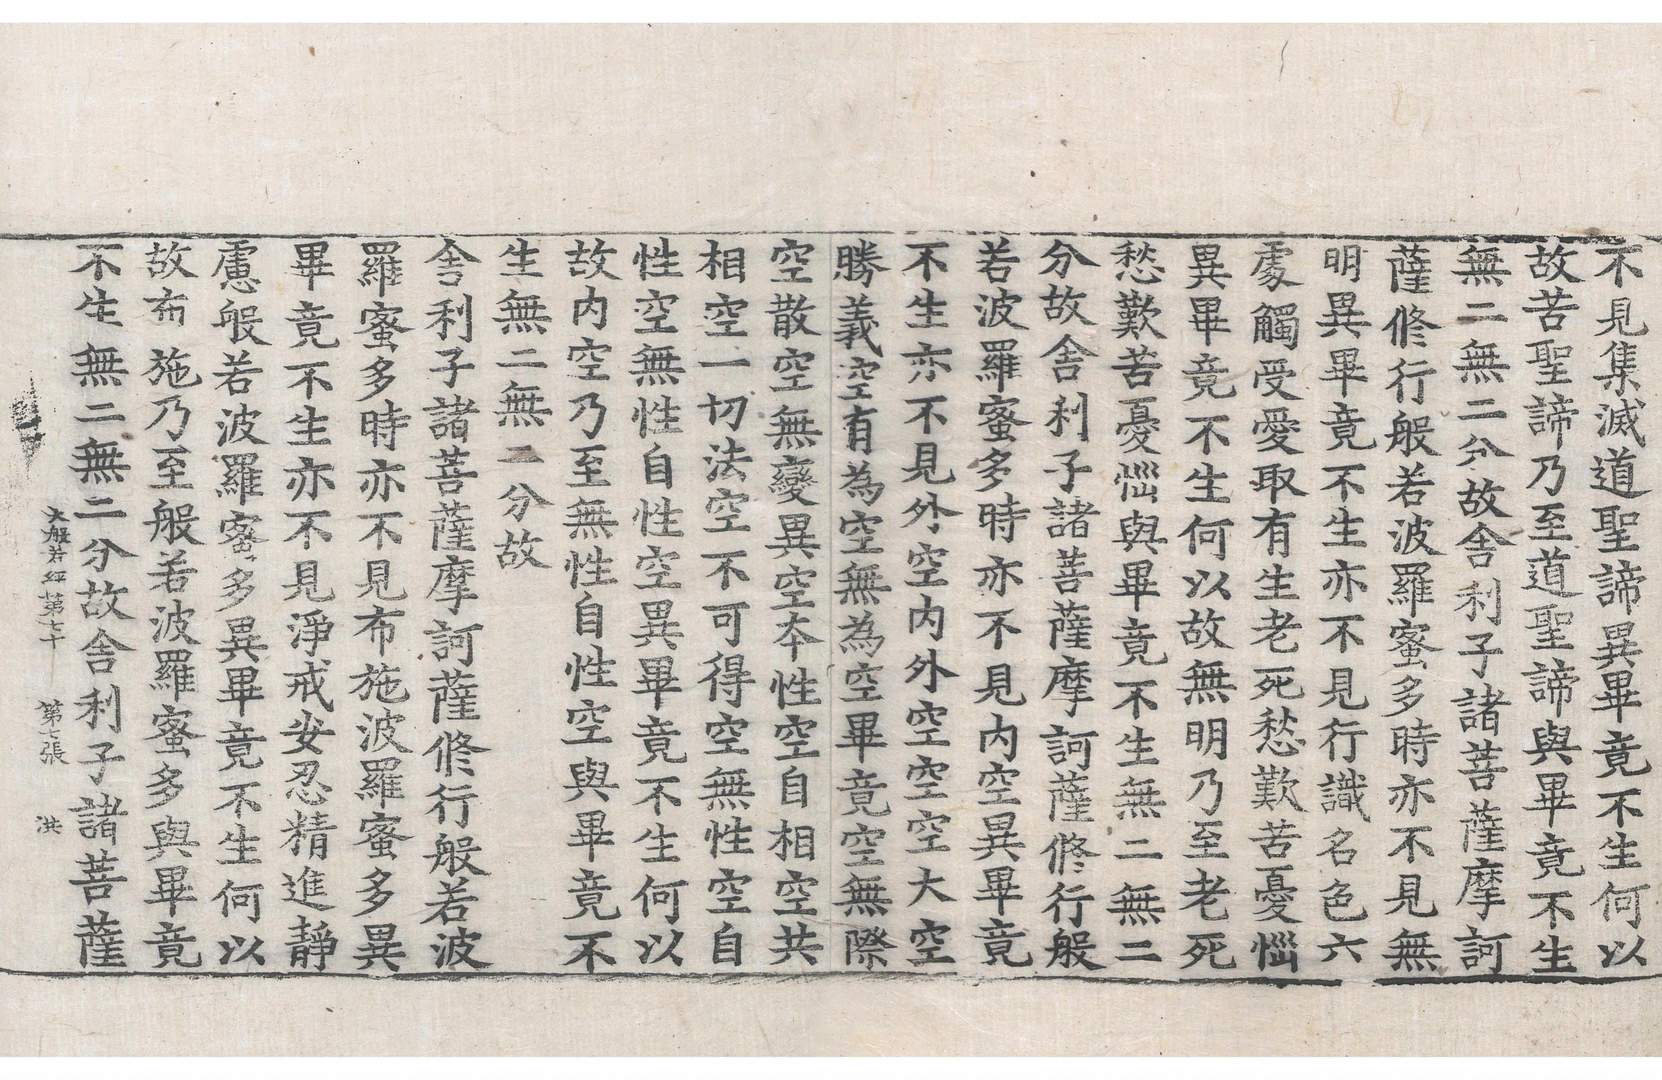 不見集滅道聖諦異畢竟不生何以
故苦聖諦乃至道聖諦與畢竟不生
無二無二分故舍利子諸菩薩摩訶
薩修行般若波羅蜜多時亦不見無
明異畢竟不生亦不見行識名色六
處觸受愛取有生老死愁歎苦憂惱
異畢竟不生何以故無明乃至老死
愁歎苦憂惱與畢竟不生無二無二
分故舍利子諸菩薩摩訶薩修行般
若波羅蜜多時亦不見內空異畢竟
不生亦不見外空內外空空空大空
勝義空有為空無為空畢竟空無際
空散空無變異空本性空自相空共
相空一切法空不可得空無性空自
性空無性自性空異畢竟不生何以
故內空乃至無性自性空與畢竟不
生無二無二分故
舍利子諸菩薩摩訶薩修行般若波
羅蜜多時亦不見布施波羅蜜多異
畢竟不生亦不見淨戒安忍精進靜
慮般若波羅蜜多異畢竟不生何以
故布施乃至般若波羅蜜多與畢竟
不生無二無二分故舍利子諸菩薩
大般若經第七十 第七張 洪